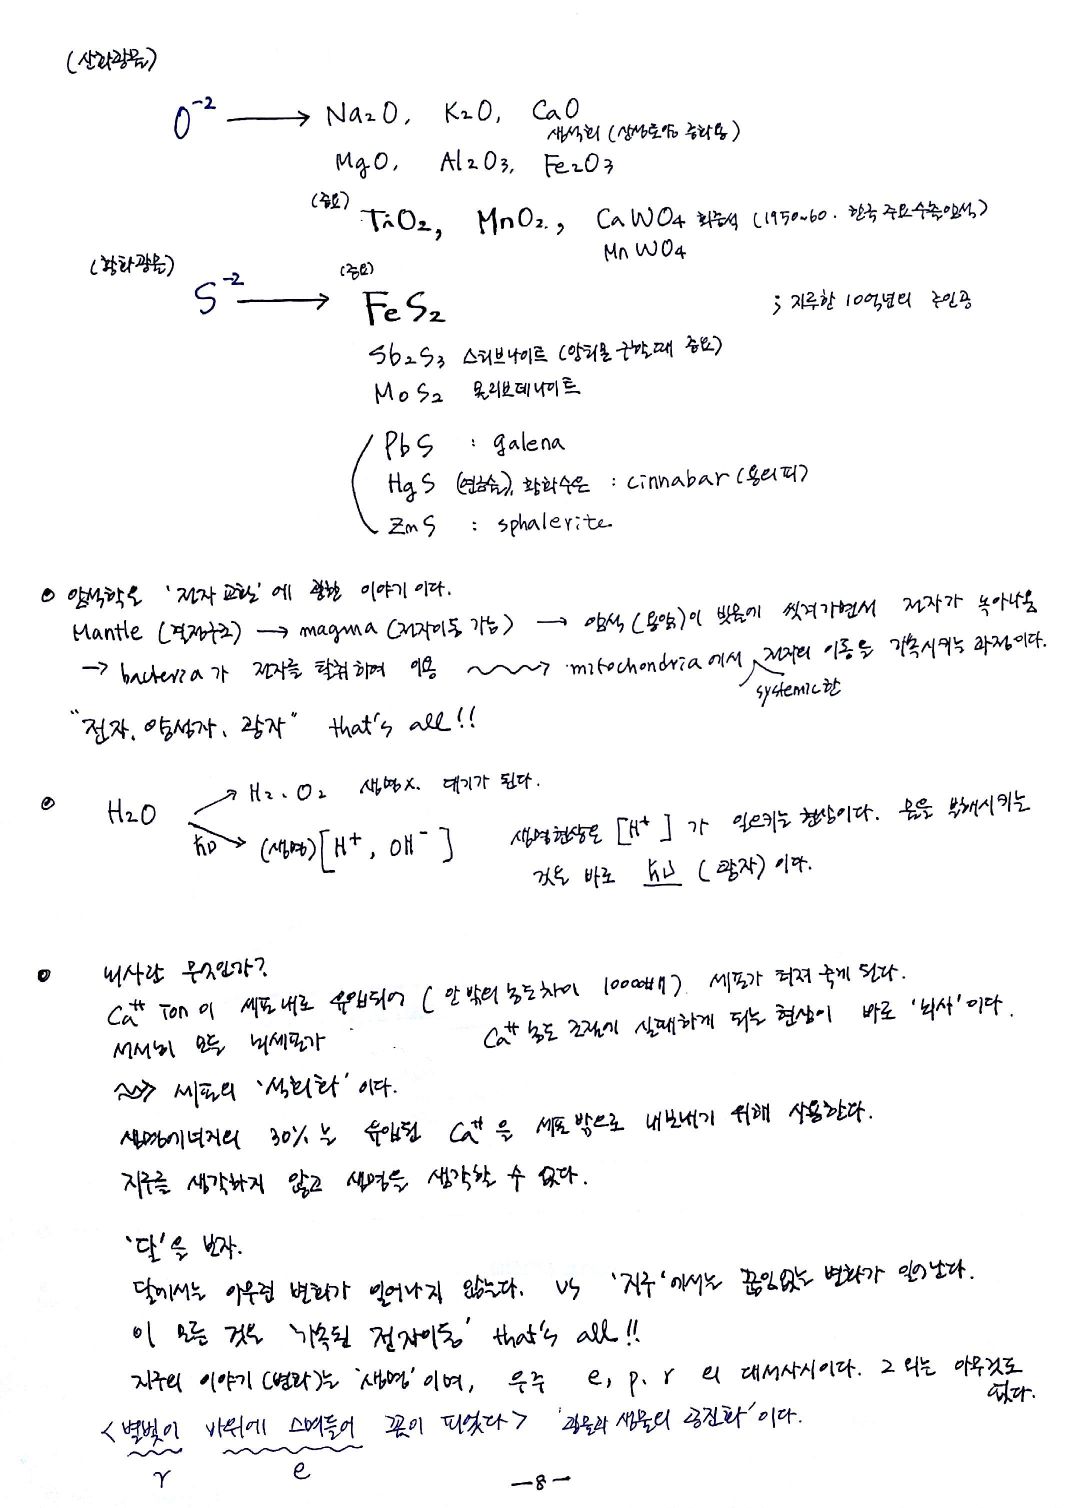 (산화광물)
O⁻² → Na₂O, K₂O, CaO
생석회 (산성토양 중화용)
MgO, Al₂O₃, Fe₂O₃
(중요) TiO₂, MnO₂, CaWO₄ 회중석 (1950~60. 한국 주요수출암석)
MnWO₄
(황화광물) (중요)
S⁻² → FeS₂ ; 지루한 10억년의 주인공
Sb₂S₃ 스티브나이트 (안티몬 구할때 중요)
MoS₂ 몰리브데나이트
PbS : galena
HgS (연금술), 황화수은 : cinnabar (용의 피)
ZnS : sphalerite
암석학은 '전자 교환'에 관한 이야기이다.
Mantle (격자구조) → magma (전자이동 가능) → 암석(용암)이 빗물에 씻겨가면서 전자가 녹아나옴
→ bacteria가 전자를 탈취하여 이용 ~~~> mitochondria에서 전자의 이동을 가속시키는 과정이다.
systemic한
"전자, 양성자, 광자" that's all!!
H₂O → H₂, O₂ 생명x. 대기가 된다.
ħν → (생명) [H⁺, OH⁻] 생명현상은 [H⁺]가 일으키는 현상이다. 물을 분해시키는
것은 바로 ħν (광자)이다.
뇌사란 무엇인가?
Ca⁺⁺ Ion이 세포내로 유입되어 (안밖의 농도차이 10000배) 세포가 터져 죽게 된다.
서서히 모든 뇌세포가 Ca⁺⁺ 농도 조절에 실패하게 되는 현상이 바로 '뇌사'이다.
~~> 세포의 '석회화'이다.
생명에너지의 30%는 유입된 Ca⁺⁺을 세포 밖으로 내보내기 위해 사용한다.
지구를 생각하지 않고 생명을 생각할 수 없다.
'달'을 보자.
달에서는 아무런 변화가 일어나지 않는다. vs '지구'에서는 끊임없는 변화가 일어난다.
이 모든 것은 '가속된 전자이동' that's all!!
지구의 이야기(변화)는 '생명'이며, 우주 e, p, r 의 대서사시이다. 그 외는 아무것도
없다.
<별빛이 바위에 스며들어 꽃이 피었다> '광물과 생물의 공진화'이다.
r e
-8-